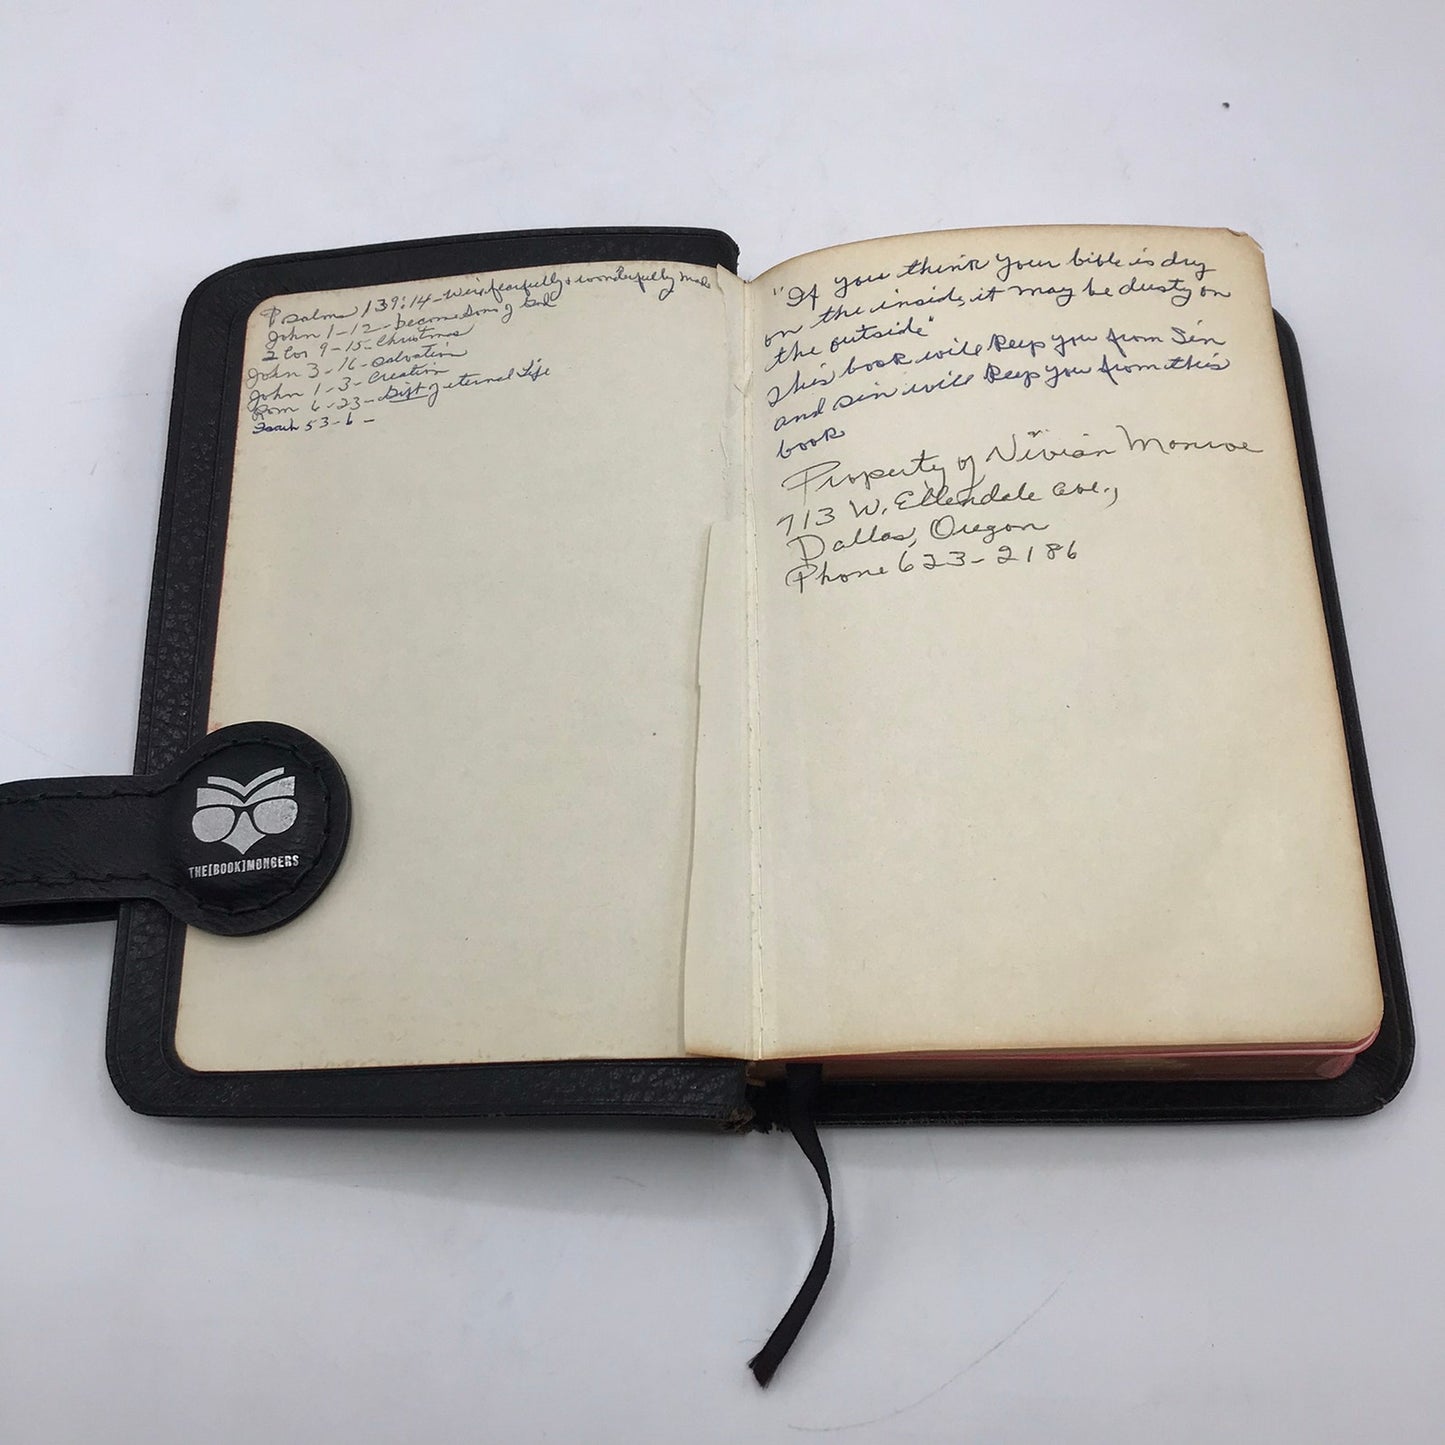 Psalms 139:14 - We're fearfully & wonderfully made
John 1-12 - become Sons of God
2 Cor 9-15 - Christmas
John 3-16 - Salvation
John 1-3 - Creation
Rom 6-23 - Gift of eternal Life
Isaih 53-6 -
THE[BOOK]MONGERS
"If you think your bible is dry
on the inside, it may be dusty on
the outside"
This book will keep you from Sin
and sin will keep you from this
book
Property of Vivian Monroe
713 W. Ellendale Ave.,
Dallas, Oregon
Phone 623-2186